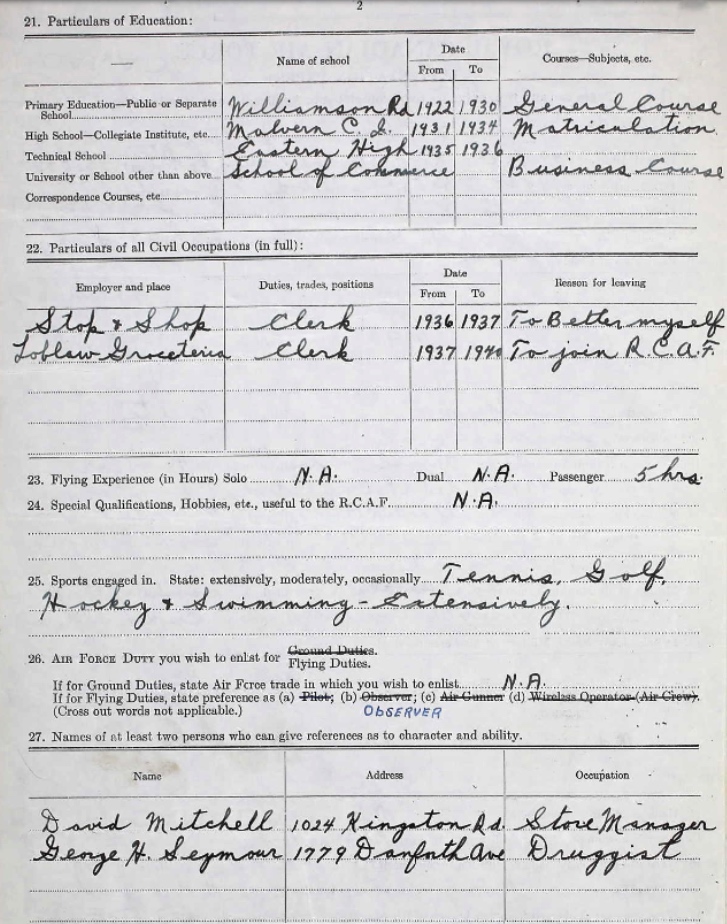 2
21. Particulars of Education:
Name of school
Date
From To
Courses—Subjects, etc.
Primary Education—Public or Separate School Williamson Rd 1922 1930 General Course
High School—Collegiate Institute, etc. Malvern C. I. 1931 1934 Matriculation.
Technical School Eastern High 1935 1936
University or School other than above School of Commerce Business Course
Correspondence Courses, etc
22. Particulars of all Civil Occupations (in full):
Employer and place
Duties, trades, positions
Date
From To
Reason for leaving
Stop & Shop Clerk 1936 1937 To Better myself
Loblaw Groceteria Clerk 1937 1940 To join R.C.A.F.
23. Flying Experience (in Hours) Solo N.A. Dual N.A. Passenger 5 hrs.
24. Special Qualifications, Hobbies, etc., useful to the R.C.A.F. N.A.
25. Sports engaged in. State: extensively, moderately, occasionally Tennis, Golf,
Hockey & Swimming - Extensively.
26. AIR FORCE DUTY you wish to enlist for Ground Duties.
Flying Duties.
If for Ground Duties, state Air Force trade in which you wish to enlist N.A.
If for Flying Duties, state preference as (a) Pilot; (b) Observer; (c) Air Gunner (d) Wireless Operator (Air Crew).
(Cross out words not applicable.) OBSERVER
27. Names of at least two persons who can give references as to character and ability.
Name Address Occupation
David Mitchell 1024 Kingston Rd. Store Manager
George H. Seymour 1779 Danforth Ave Druggist